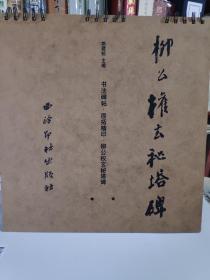 柳公權玄秘塔碑
书法碑帖·原拓精印·柳公权玄秘塔碑
西泠印社出版社